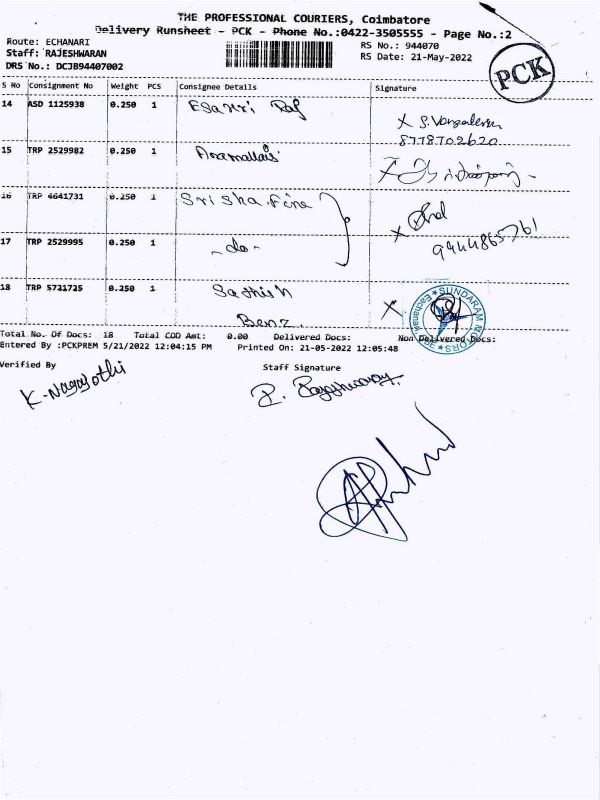 THE PROFESSIONAL COURIERS, Coimbatore
Delivery Runsheet - PCK - Phone No.:0422-3505555 - Page No.:2
Route: ECHANARI
RS No.: 944070
Staff: RAJESHWARAN
RS Date: 21-May-2022
DRS No.: DCJB94407002
PCK
S No Consignment No Weight PCS Consignee Details Signature
14 ASD 1125938 0.250 1
8778702620
15 TRP 2529982 0.250 1
16 TRP 4641731 0.250 1 Srisha Fine
17 TRP 2529995 0.250 1 -do-
9444865761
18 TRP 5721725 0.250 1 Sathish
Benz
SUNDARAM MOTORS
Total No. Of Docs: 18 Total COD Amt: 0.00 Delivered Docs: Non Delivered Docs:
Entered By :PCKPREM 5/21/2022 12:04:15 PM Printed On: 21-05-2022 12:05:48
Verified By Staff Signature
K. Nagajothi